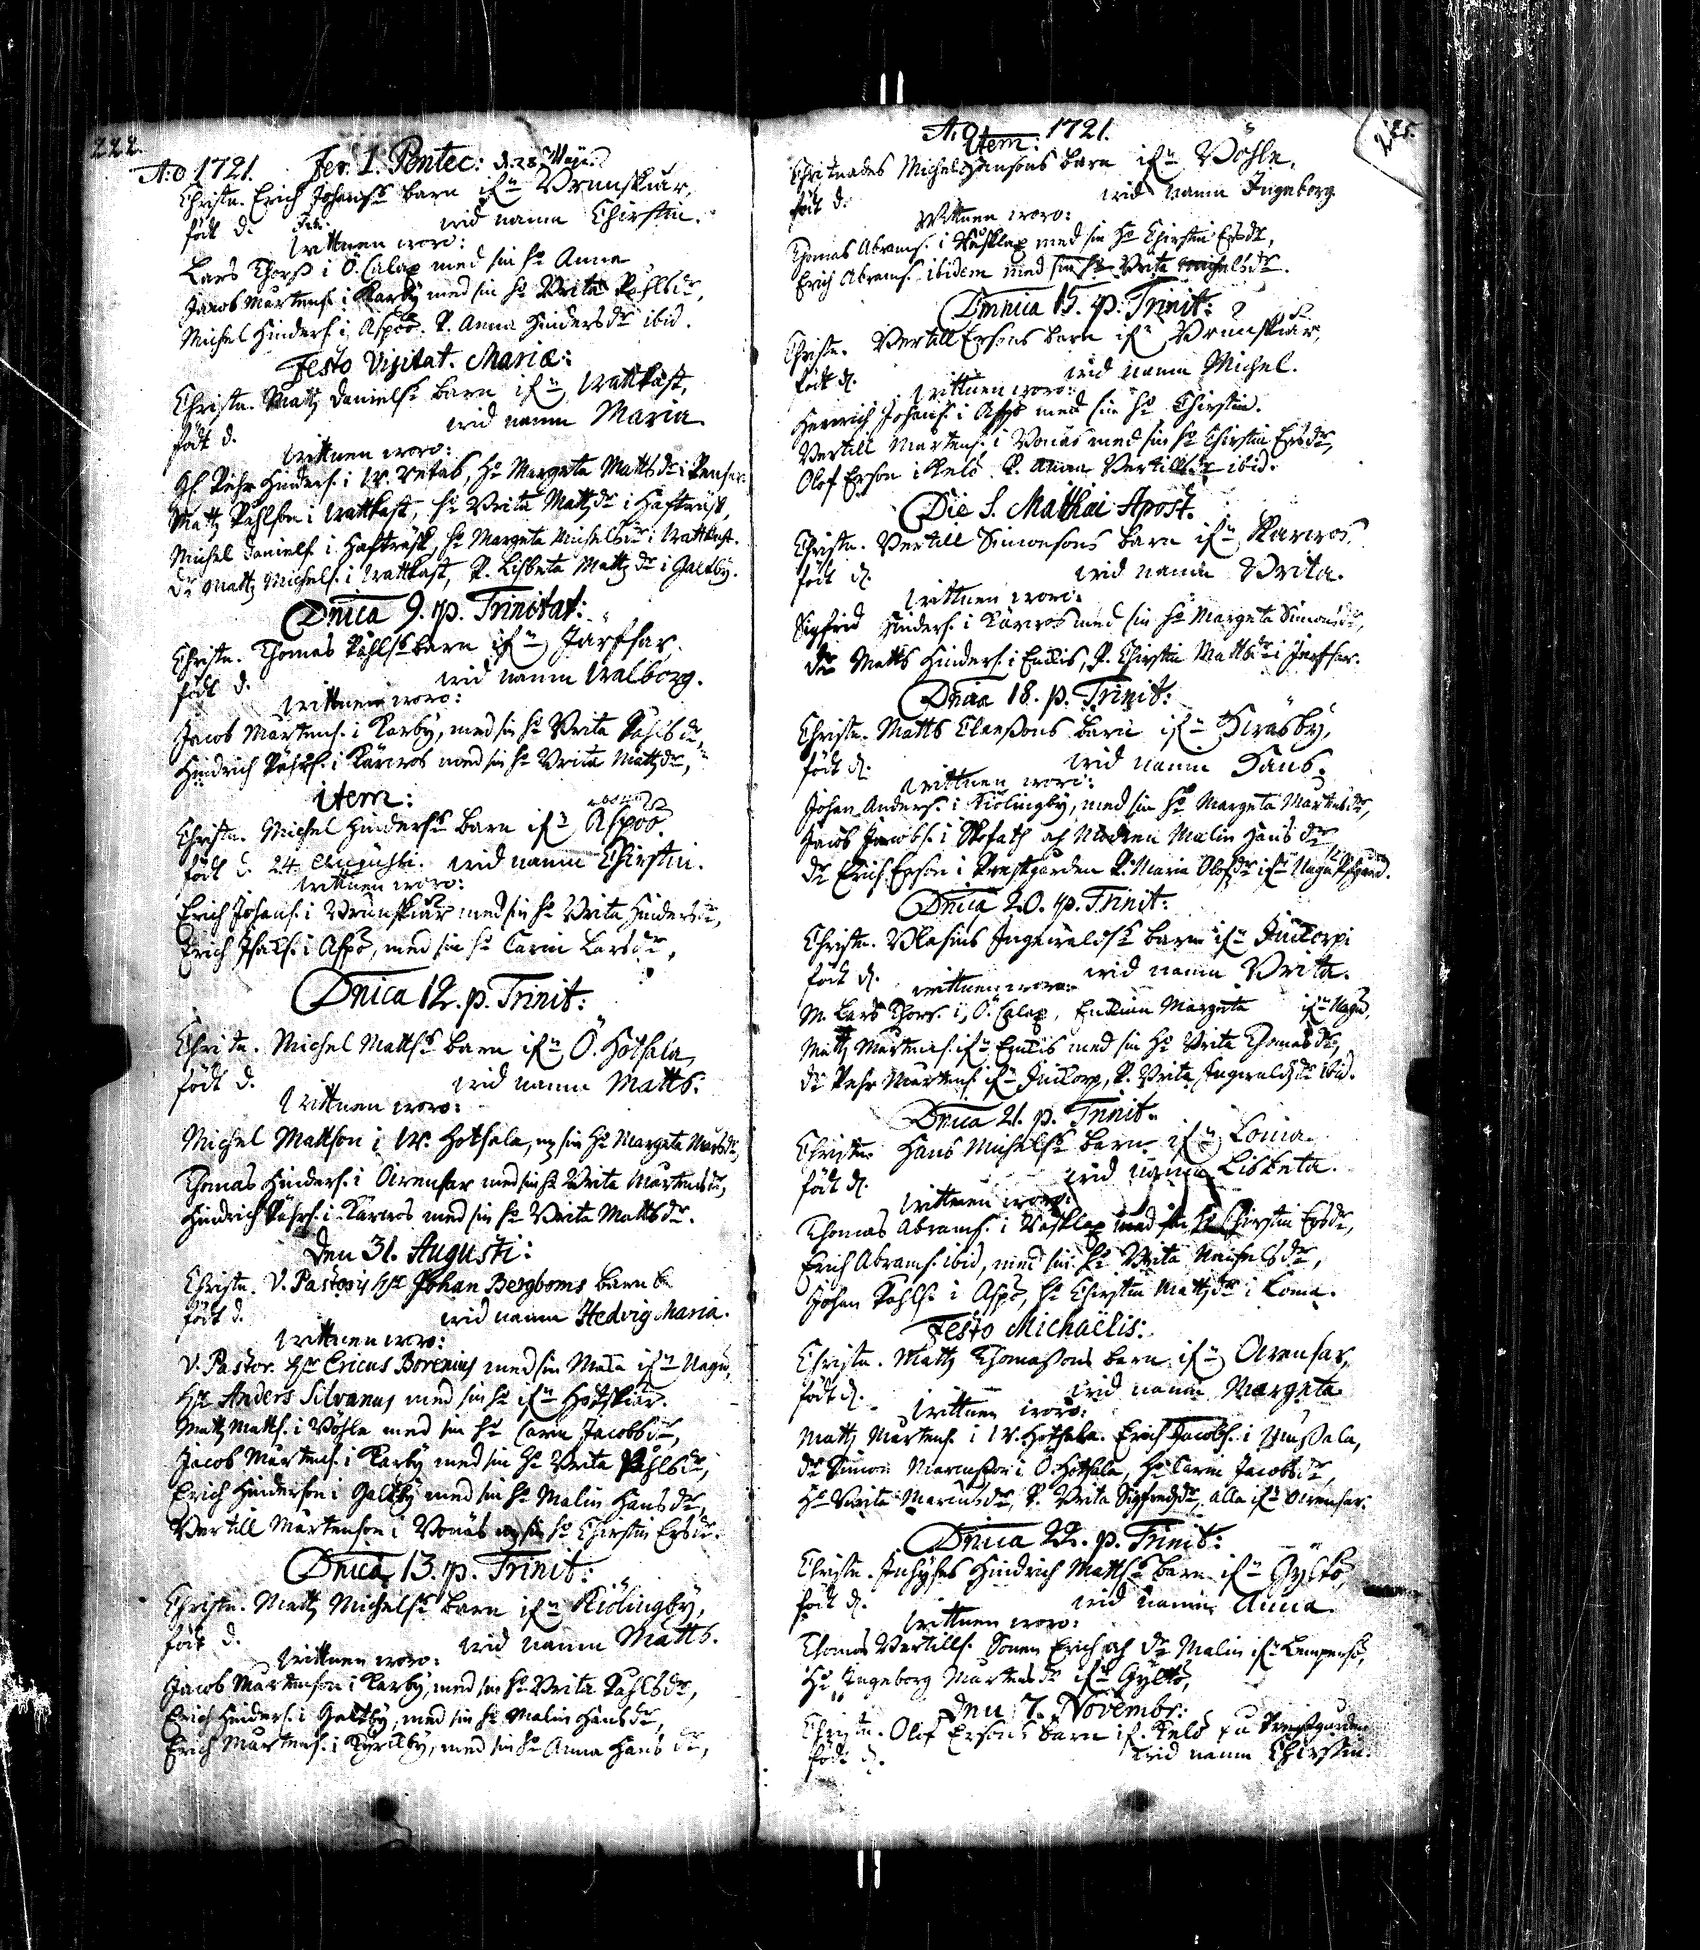 222.
A:o 1721. Fer. 1. Pentec: d. 28 Maye.
Christn. Erich Johans barn if:n Brunskiär,
födt d. wid namn Chirstin.
Wittnen woro:
Lars Thors i Ö. Calax med sin h:o Anna
Jacob Mårtens. i Karby med sin h:o Brita Påhlsd:r,
Michel Hinders. i Aspöö. P. Anna Hindersd:r ibid.
Festo Visitat. Mariæ:
Christn. Mattz Daniels barn if:n Wattkast,
födt d. wid namn Maria
Wittnen woro:
Pehr Hinders. i W. Retas, H:o Margeta Mattsd:r i Pensar.
Mattz Påhlson i Wattkast, h:o Brita Mattzd:r i Hafträsk,
Michel Daniels. i Hafträsk, h:o Margeta Michelsd:r i Wattkast.
Dr. Mattz Michels. i Wattkast, P. Lisbeta Mattzd:r i Galtby.
Dnica 9. p. Trinitat:
Christn. Thomas Påhls barn if:n Järfsar.
födt d. wid namn Walborg.
Wittnen woro:
Jacob Mårtens. i Karby, med sin h:o Brita Påhlsd:r,
Hindrich Påhls. i Kärwos med sin h:o Brita Mattzd:r,
item:
Christn. Michel Hinders barn if:n Aspöö.
födt d. 24 Augusti. wid namn Chirstin.
Wittnen woro:
Erich Johans. i Brunskiär med sin h:o Brita Hindersd:r,
Erich Isaks. i Aspö, med sin h:o Carin Larsd:r,
Dnica 12. p. Trinit:
Christn. Michel Matts barn if:n Ö. Hothala
födt d. wid namn Matts.
Wittnen woro:
Michel Mattson i W. Hothala, m sin h:o Margeta
Thomas Hinders. i Arensar med sin h:o Brita Mårtensd:r,
Hindrich Påhls. i Kärwos med sin h:o Brita Mattsd:r.
Den 31. Augusti:
Christn. V. Pastoris H:r Johan Bergboms barn
födt d. wid namn Hedvig Maria.
Wittnen woro:
V. Pastor. H:r Ericus Borenius med sin Måsa if:n Nagu,
H:r Anders Silvanus med sin h:o if:n Högskiär.
Mattz Matts. i Böhle med sin h:o Carin Jacobsd:r,
Jacob Mårtens. i Karby med sin h:o Brita Påhlsd:r,
Erich Hinderson i Galtby med sin h:o Malin Hansd:r,
Bertill Mårtenson i Bonäs m sin h:o Chirstin Ersd:r.
Dnica 13. p. Trinit:
Christn. Mattz Michels barn if:n Kiölingby,
födt d. wid namn Matts.
Wittnen woro:
Jacob Mårtenson i Karby, med sin h:o Brita Påhlsd:r,
Erich Hinders. i Galtby, med sin h:o Malin Hansd:r,
Erich Mårtens. i Kyrklby, med sin h:o Anna Hansd:r,
A:o 1721.
item:
Christnades Michel Hansons barn if:n Böhle,
födt d. wid namn Ingeborg
Wittnen woro:
Thomas Abrams. i Wäsklax med sin h:o Chirstin Ersd:r,
Erich Abrams. ibidem med sin h:o Brita Michelsd:r.
Dmnica 15. p. Trinit:
Christn. Bertill Ersons barn if:n Brunskiär,
födt d. wid namn Michel.
Wittnen woro:
Henrich Johans. i Aspö med sin h:o Chirstin.
Bertill Mårtens. i Bonäs med sin h:o Chirstin Ersd:r,
Olof Erson i Kelö. P. Anna Bertillsd:r ibid.
Die S. Mathæi Apost.
Christn. Bertill Simonsons barn if:n Karwos
födt d. wid namn Brita.
Wittnen woro:
Sigfrid Hinders. i Kärwos med sin h:o Margeta Simonsd:r,
Dr. Matts Hinders. i Enklis, P. Chirstin Mattsd:r i Järfsar.
Dnica 18. p. Trinit:
Christn. Matts Clemssons barn if:n Siräsby,
födt d. wid namn Hans.
Wittnen woro:
Johan Anders. i Kiölingby, med sin h:o Margeta Mårtensd:r,
Jacob Jacobs. i Skofath och Modren Malin Hansd:r
Dr. Erich Erson i Prestgården P. Maria Olofsd:r if:n Nagu
Dnica 20. p. Trinit:
Christn. Blasius Ingewalds barn if:n Finkorpi
födt d. wid namn Brita.
Wittnen woro:
M. Lars Thors. i Ö. Calax, Enkian Margeta if:n Nagu,
Mattz Mårtens. if:n Enklis med sin h:o Brita Thomasd:r,
Dr. Pehr Mårtens. if:n Finkorp, P. Brita Ingewaldsd:r ibid.
Dnica 21. p. Trinit.
Christn. Hans Michels barn if:n Loma.
födt d. wid namn Lisbeta.
Wittnen woro:
Thomas Abrams. i Wäsklax med sin h:o Chirstin Ersd:r,
Erich Abrams. ibid, med sin h:o Brita Michelsd:r,
Johan Påhls. i Aspö, h:o Chirstin Mattzd:r i Loma.
Festo Michaëlis:
Christn. Mattz Thomassons barn if:n Arensar,
födt d. wid namn Margeta
Wittnen woro:
Mattz Mårtens. i W. Hothala. Erich Jacobs. i Mussala,
Dr. Simon Marcusson i Ö. Hothala, H:o Carin Jacobsd:r,
H:o Brita Marcusd:r, P. Brita Sigfredsd:r, alla if:n Arensar.
Dnica 22. p. Trinit:
Christn. Inhyses Hindrich Matts barn if:n Gyltö,
födt d. wid namn Anna
Wittnen woro:
Thomas Bertills. Sonen Erich och Dr. Malin if:n Lempersö,
H:o Ingeborg Mårtensd:r if:n Gyltö,
Den 7. Novembr:
Christn. Olof Ersons barn if. Kelö på Prestgården
födt d. wid namn Chirstin.